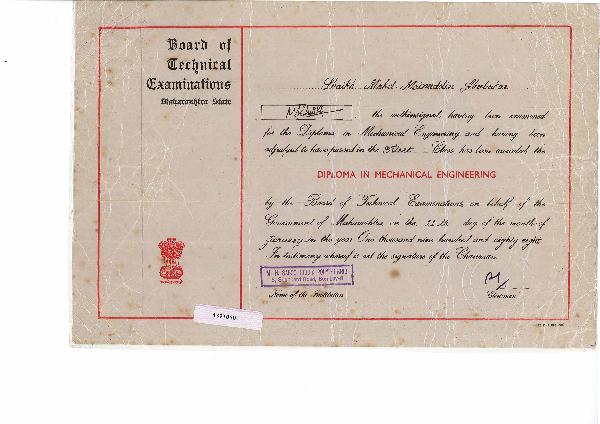 Board of
Technical
Examinations
Maharashtra State
Shaikh Mohd
the withinsigned, having been examined
for the Diploma in Mechanical Engineering and having been
adjudged to have passed in the First Class has been awarded the
DIPLOMA IN MECHANICAL ENGINEERING
by the Board of Technical Examinations on behalf of the
Government of Maharashtra on the 22nd day of the month of
January in the year One thousand nine hundred and eighty eight.
In testimony whereof is set the signature of the Chairman.
M. H. SABOO SIDDIK POLYTECHNIC
8, Shepherd Road, Bombay-8
Name of the Institution
Chairman